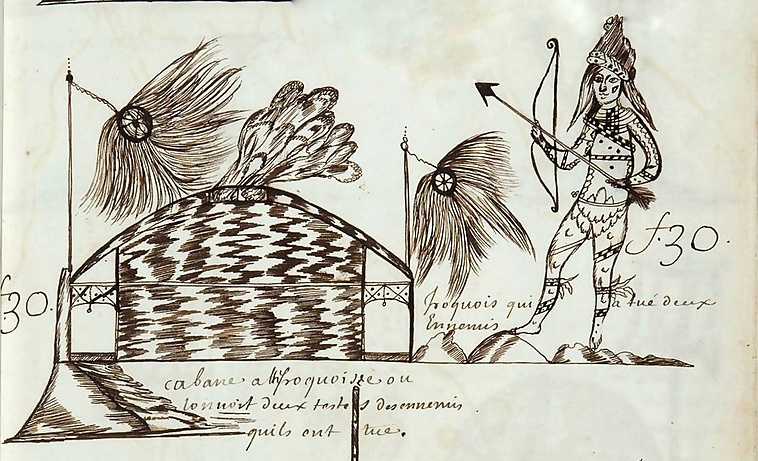 f.30.
f.30.
Iroquois qui a tué deux
Ennemis
cabane a l'Iroquoise ou
lon voit deux testes des ennemis
quils ont tue.